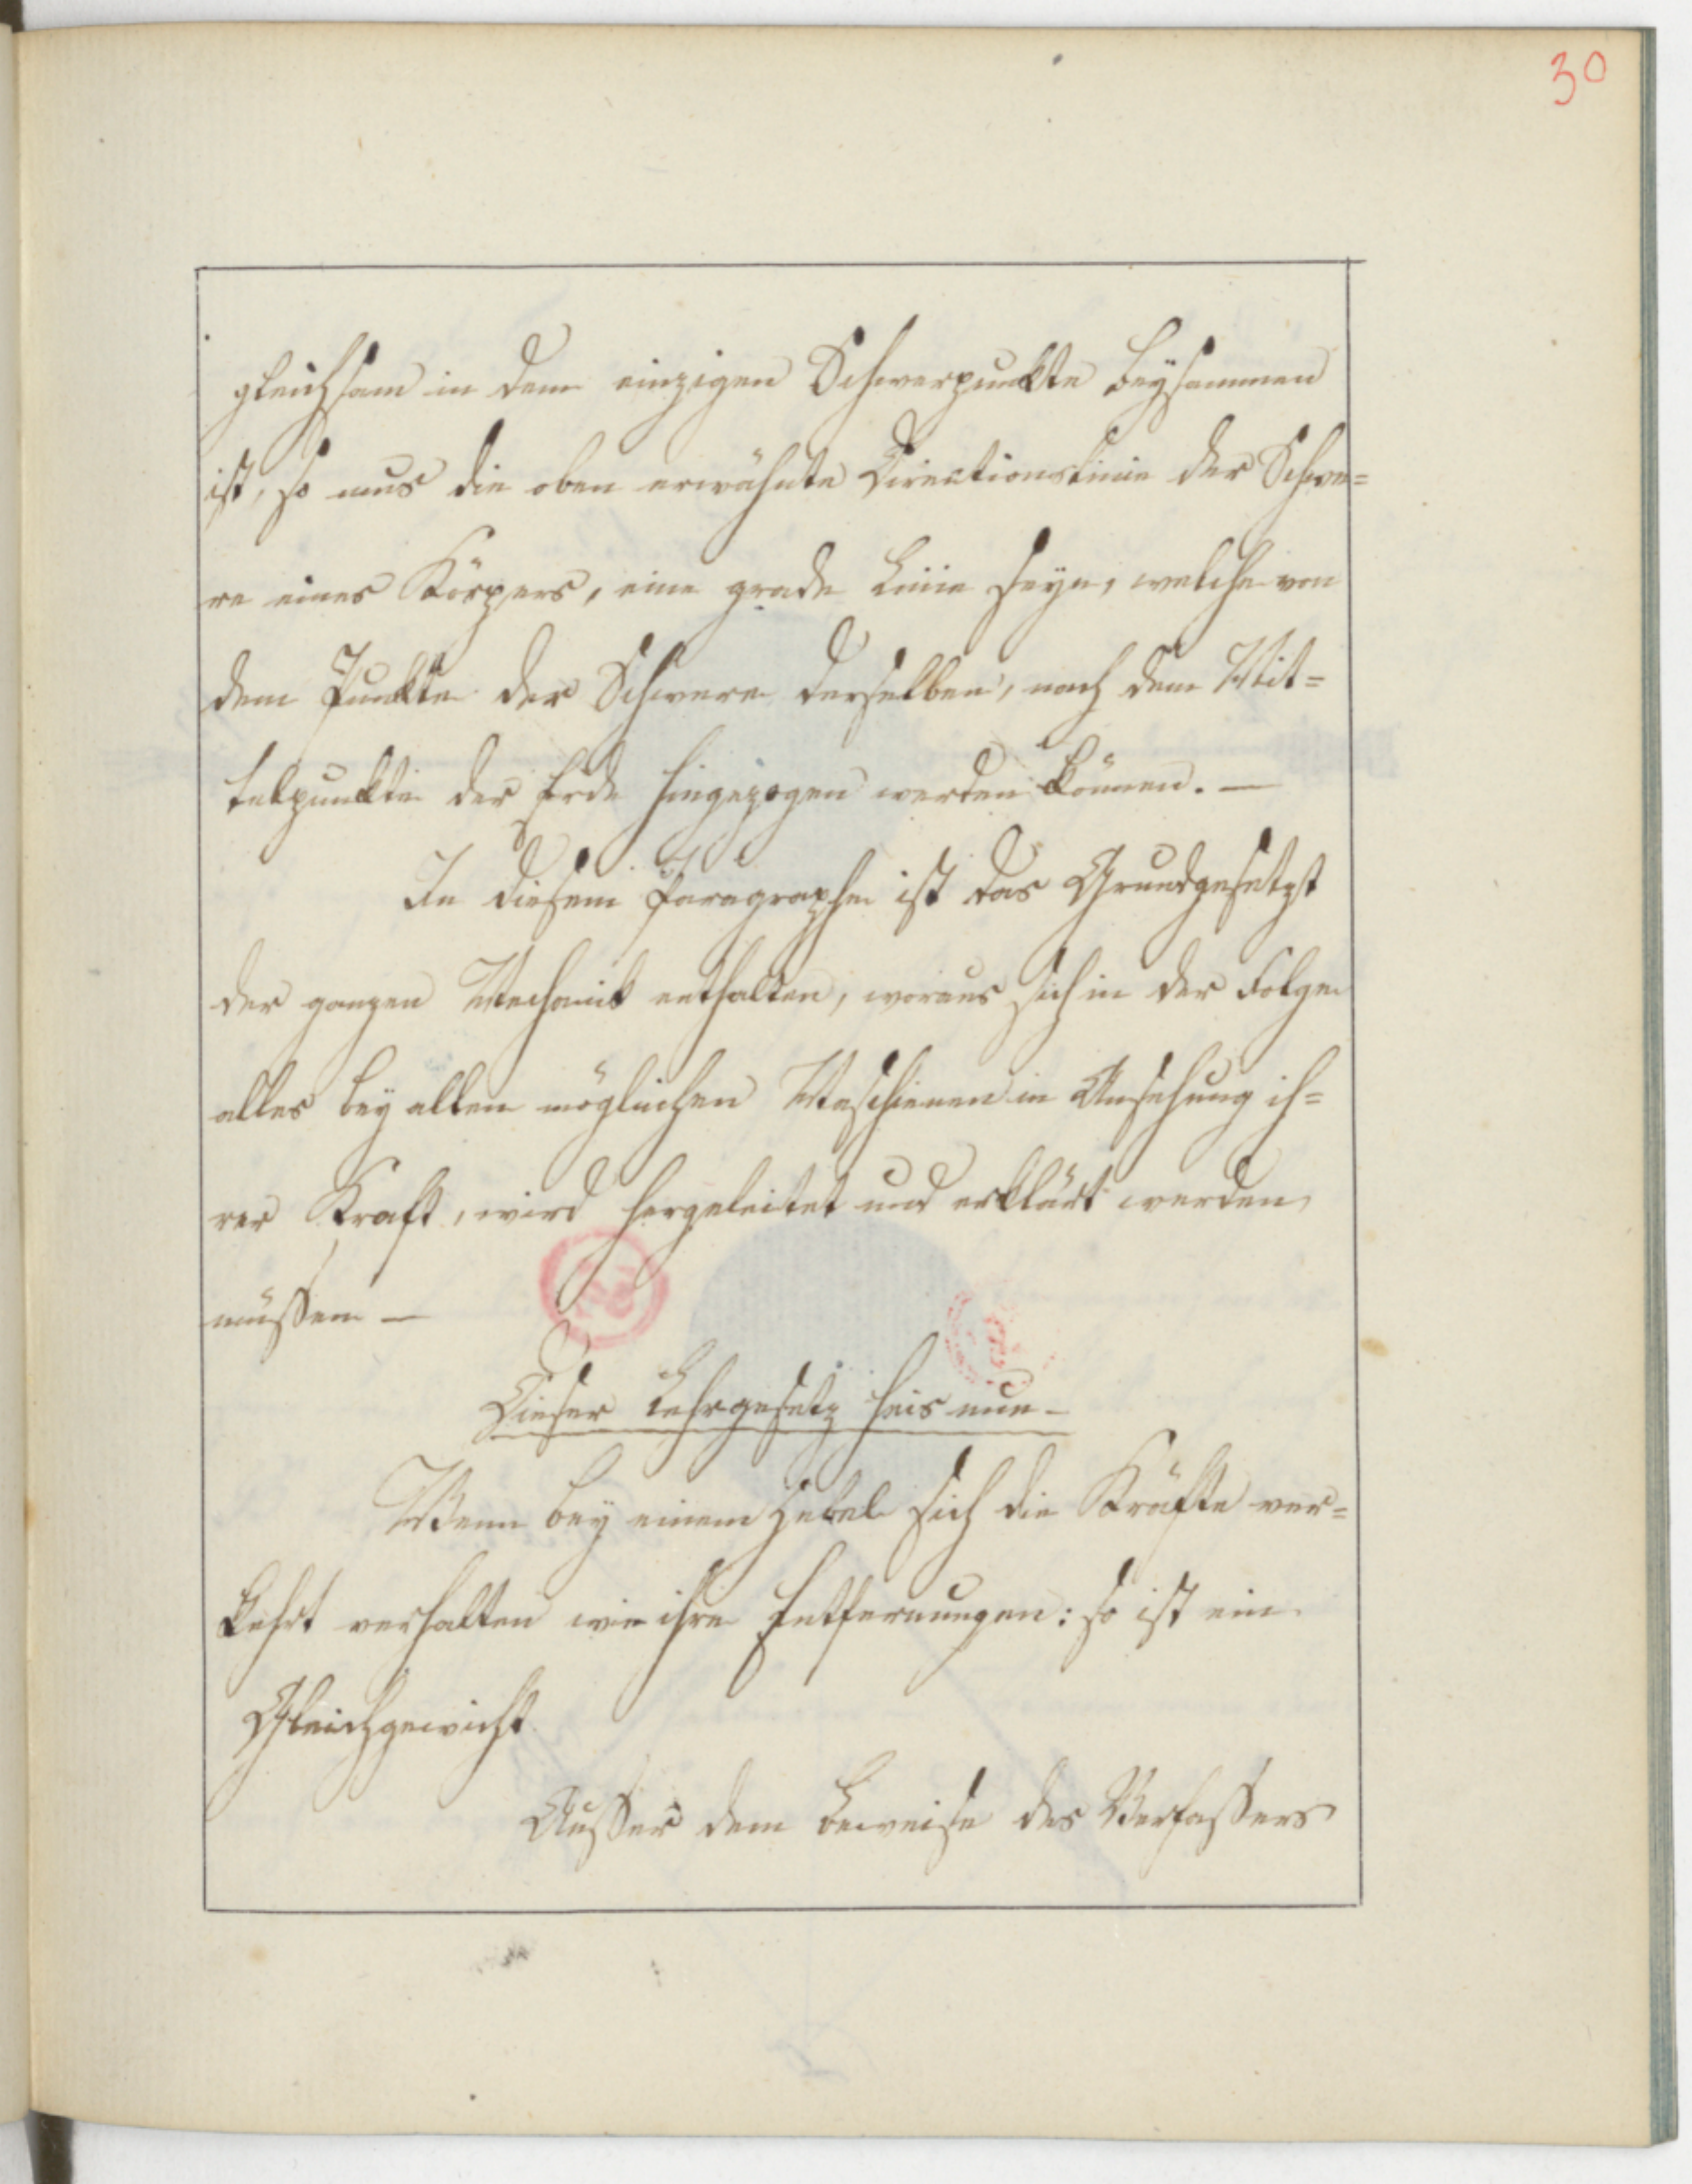 30
gleichsam in dem einzigen Schwerpunkte beysammen
ist, so mus die oben erwähnte Directionslinie der Schwe=
re eines Körpers, eine grade Linie seyn, welche von
dem Punkte der Schwere derselben, nach dem Mit=
telpunkte der Erde hingezogen werden können. —
In diesem Paragraphe ist das Grundgesetzt
der ganzen Mechanik enthalten, woraus sich in der Folge
alles bey allen möglichen Maschienen in Ansehung ih=
rer Kraft, wird hergeleitet und erklärt werden
müssen —
Dieser Lehrgesetz heis nun —
Wenn bey einem Hebel sich die Kräfte ver=
kehrt verhalten wie ihre Entfernungen: so ist ein
Gleichgewicht
Ausser dem Beweise des Verfassers